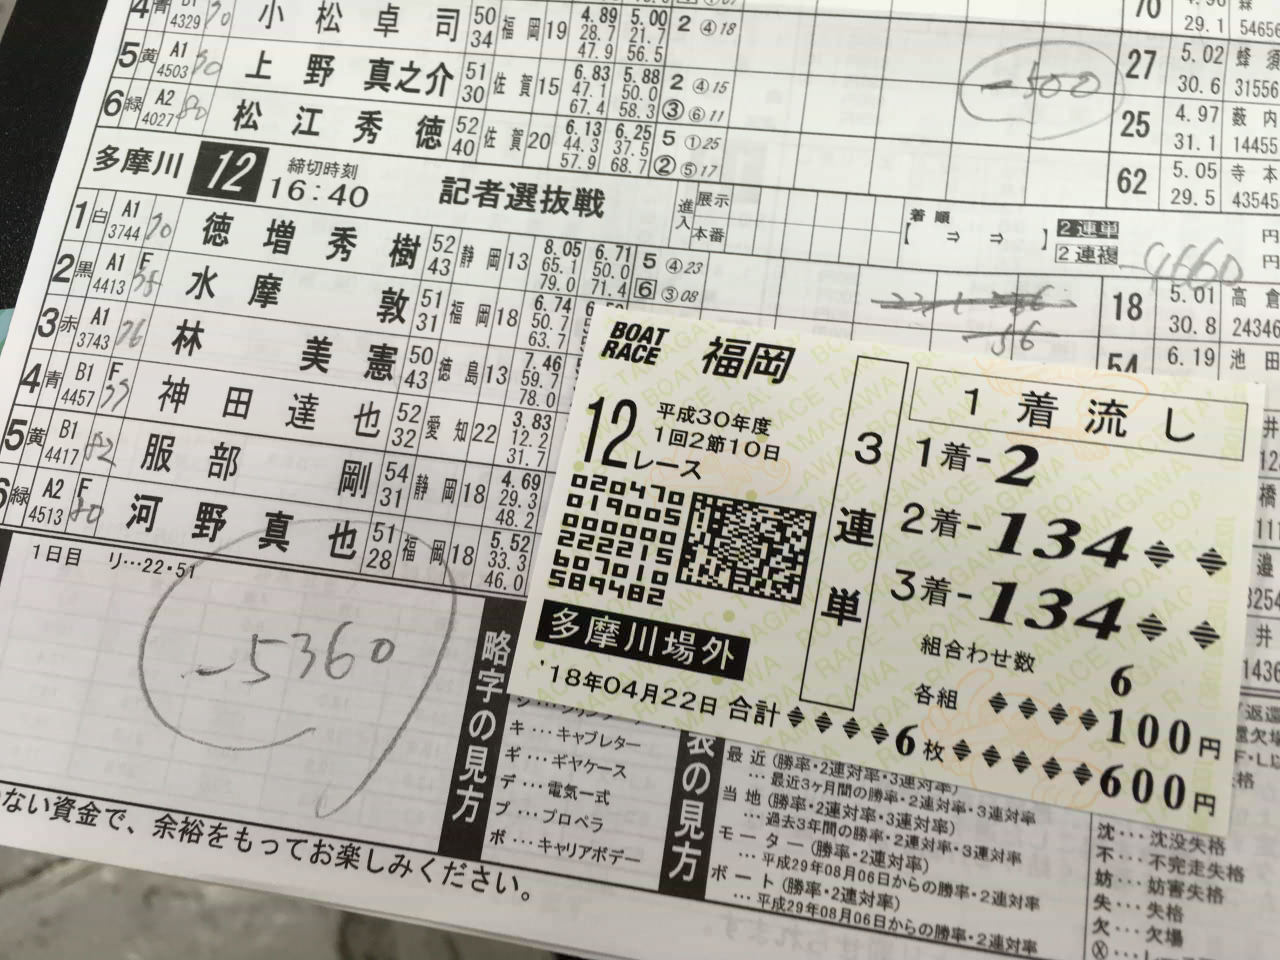 4 青 B1 4329 70 小松卓司 50 34 福岡 19 4.89 28.7 47.9 5.00 21.7 56.5 2 ④18
5 黄 A1 4503 上野真之介 51 30 佐賀 15 6.83 47.1 67.4 5.88 50.0 58.3 2 ④15 ③ ⑥11
6 緑 A2 4027 80 松江秀徳 52 40 佐賀 20 6.13 44.3 57.9 6.25 37.5 68.7 5 ①25 ② ⑤17
-500
70 29.1 54656
27 5.02 30.6 蜂須 31556
25 4.97 31.1 薮内 14455
62 5.05 29.5 寺本 43545
多摩川 12 締切時刻 16:40 記者選抜戦 進入 展示 本番
着順 【 ⇒ ⇒ 】 2連単 円
2連複 円
-4660
1 白 A1 3744 70 徳増秀樹 52 43 静岡 13 8.05 65.1 79.0 6.71 50.0 71.4 5 ④23 6 ③08
2 黒 A1 4413 F 水摩敦 51 31 福岡 18 6.74 50.7 63.7
3 赤 A1 3743 76 林美憲 50 43 徳島 13 7.46 59.7 78.0
4 青 B1 4457 F 神田達也 52 32 愛知 22 3.83 12.2 31.7
5 黄 B1 4417 82 服部剛 54 31 静岡 18 4.69 29.3 48.2
6 緑 A2 4513 F 80 河野真也 51 28 福岡 18 5.52 33.3 46.0
18 5.01 30.8 高倉 24346
54 6.19 池田
-56
1日目 リ…22・51
-5360
BOAT RACE 福岡
12レース
平成30年度
1回2節10日
020470
019005
000000
222215
607010
589482
多摩川場外
'18年04月22日
3連単
1着流し
1着-2
2着-134
3着-134
組合わせ数 6
各組 100円
合計 6枚 600円
略字の見方
キ…キャブレター
ギ…ギヤケース
デ…電気一式
プ…プロペラ
ボ…キャリアボデー
表の見方
最近(勝率・2連対率・3連対率)
…最近3ヶ月間の勝率・2連対率・3連対率
当地(勝率・2連対率・3連対率)
…過去3年間の勝率・2連対率・3連対率
モーター(勝率・2連対率)
…平成29年08月06日からの勝率・2連対率
ボート(勝率・2連対率)
…平成29年08月06日からの勝率・2連対率
沈…沈没失格
不…不完走失格
妨…妨害失格
失…失格
欠…欠場
ない資金で、余裕をもってお楽しみください。